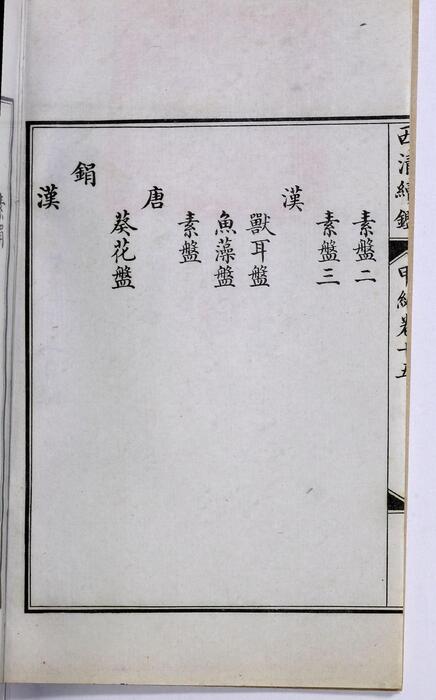 西清續鑑 甲編卷十五
素盤二
素盤三
漢
獸耳盤
魚藻盤
唐
素盤
葵花盤
鋗
漢
素鋗